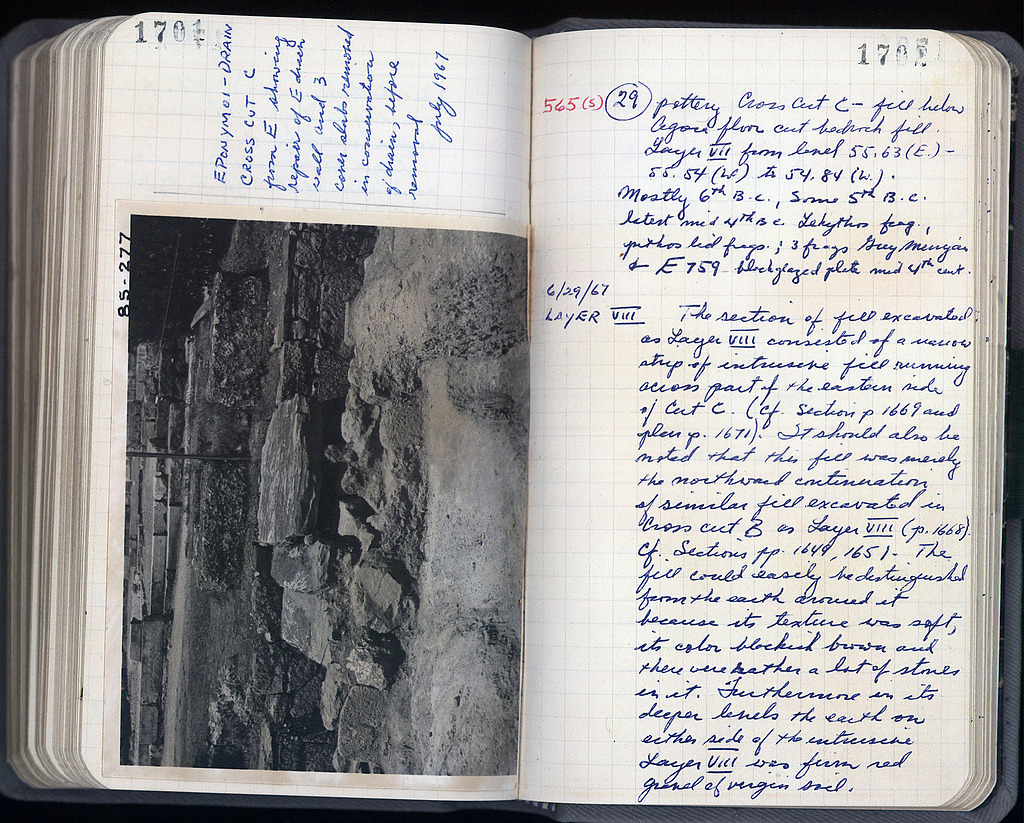 1701
EPONYMOI-DRAIN
CROSS CUT C
from E showing
repair of E drain
wall and 3
cover slabs removed
in conservation
of drain, before
removal
July 1967
85-277
1702
565(s) 29 pottery Cross Cut C - fill below
Agora floor cut bedrock fill.
Layer VII from level 55.63 (E.) -
55.54 (W) to 54.84 (W.).
Mostly 6th B.C., Some 5th B.C.
latest mid 4th B.C. Lekythos frag.,
pithos lid frags.; 3 frags Grey Minyan
& E 759 blackglazed plate mid 4th cent.
6/29/67
LAYER VIII The section of fill excavated
as Layer VIII consisted of a narrow
strip of intrusive fill running
across part of the eastern side
of Cut C. (cf. Section p 1669 and
plan p. 1671). It should also be
noted that this fill was merely
the northward continuation
of similar fill excavated in
Cross cut B as Layer VIII (p. 1668).
Cf. Sections pp. 1649, 1651. The
fill could easily be distinguished
from the earth around it
because its texture was soft,
its color blackish brown and
there were rather a lot of stones
in it. Furthermore in its
deeper levels the earth on
either side of the intrusive
Layer VIII was firm red
gravel of virgin soil.